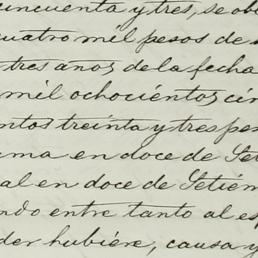 cincuenta y tres, se ob
cuatro mil pesos de
tres años de la fecha
mil ochocientos cin
ntos treinta y tres pe
ma en doce de Se
al en doce de Setiem
ndo entre tanto al es
der hubiere, causa y